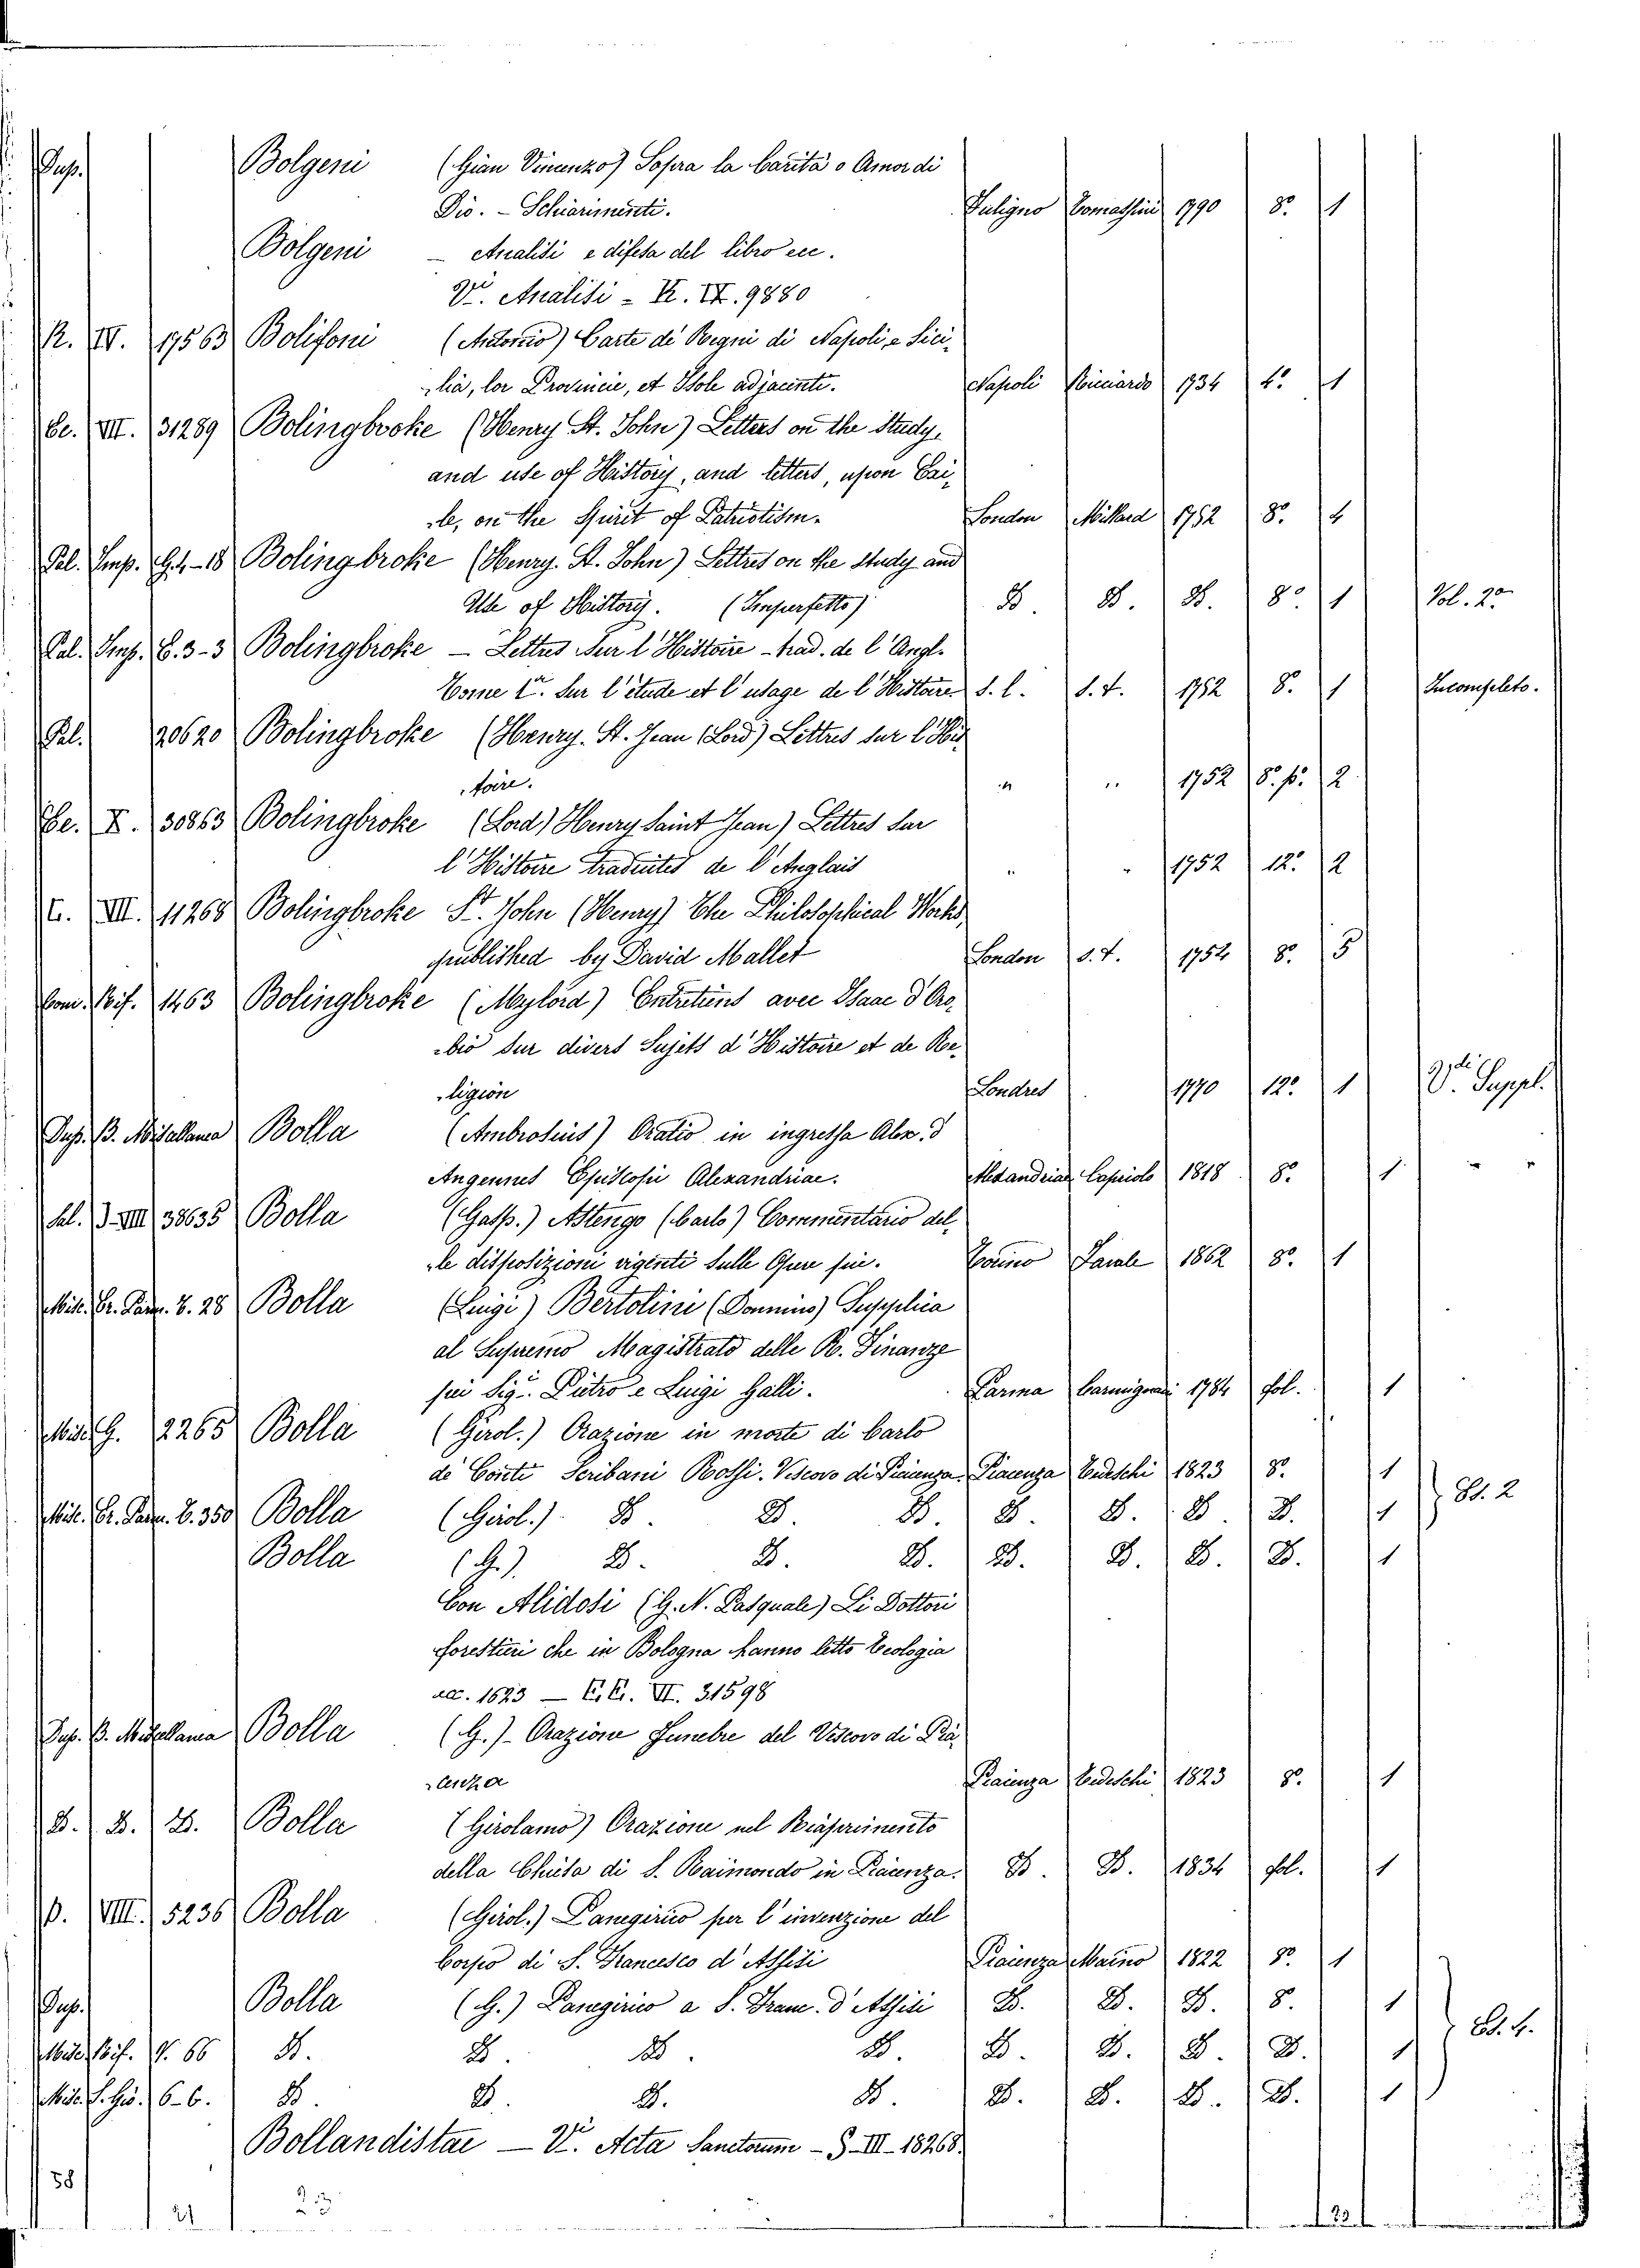 Dup. Bolgeni (Gian Vincenzo) Sopra la Carità o Amor di
Dio. - Schiarimenti. Fuligno Tomassini 1790 8.° 1
Bolgeni — Analisi e difesa del libro ecc.
V. Analisi - K. IX. 9880
R. IV. 17563 Bolifoni (Antonio) Carte de Regni di Napoli e Sici-
-lia, lor Provincie, et Isole adjacenti. Napoli Ricciardo 1734 4.° 1
Cc. VII. 31289 Bolingbroke (Henry St. John) Letters on the Study,
and use of History, and letters, upon Exi-
-le, on the Spirit of Patriotism. London Millard 1752 8.° 4
Pal. Imp. G.4-18 Bolingbroke (Henry. St. John) Lettres on the Study and
Use of History. (Imperfetto) D. D. D. 8.° 1 Vol. 2.°
Pal. Imp. C.3-3 Bolingbroke — Lettres sur l'Histoire - trad. de l'Angl.
Tome 1.er Sur l'étude et l'usage de l'Histoire s. l. s. t. 1752 8.° 1 Incompleto.
Pal. 20620 Bolingbroke (Henry. St. Jean (Lord) Lettres sur l'His-
-toire. " " 1752 8.° p.° 2
Cc. X. 30863 Bolingbroke (Lord) Henry Saint Jean) Lettres sur
l'Histoire traduites de l'Anglais " " 1752 12.° 2
G. VII. 11268 Bolingbroke St. John (Henry) The Philosophical Works,
published by David Mallet London s. t. 1754 8.° 5
Com. Rif. 1463 Bolingbroke (Mylord) Entretiens avec Isaac d'Oro-
-bio sur divers Sujets d'Histoire et de Re-
-ligion Londres 1770 12.° 1 V.di Suppl.
Dup. B. Miscellanea Bolla (Ambrosius) Oratio in ingressa Alex. d
Angennes Episcopi Alexandriae. Alexandriae Capriolo 1818 8.° 1
Sal. J. VIII 38635 Bolla (Gasp.) Astengo (Carlo) Commentario del-
-le disposizioni vigenti sulle Opere pie. Torino Favale 1862 8.° 1
Misc. Er. Parm. 8. 28 Bolla (Luigi) Bertolini (Donnino) Supplica
al Supremo Magistrato delle R. Finanze
pei Sig.ri Pietro e Luigi Galli. Parma Carmignani 1784 fol. 1
Misc. G. 2265 Bolla (Girol.) Orazione in morte di Carlo
de' Conti Scribani Rossi. Vescovo di Piacenza. Piacenza Tedeschi 1823 8.° 1
Misc. Er. Parm. 8. 350 Bolla (Girol.) D. D. D. D. D. D. D. 1 Es. 2
Bolla (G.) D. D. D. D. D. D. D. 1
Con Alidosi (G. N. Pasquale) Li Dottori
forestieri che in Bologna hanno letto Teologia
ecc. 1623 — VI. 31598
Dup. B. Miscellanea Bolla (G.) - Orazione Funebre del Vescovo di Pia-
-cenza Piacenza Tedeschi 1823 8.° 1
D. D. D. Bolla (Girolamo) Orazione nel Riaprimento
della Chiesa di S. Raimondo in Piacenza. D. D. 1834 fol. 1
P. VIII. 5236 Bolla (Girol.) Panegirico per l'invenzione del
Corpo di S. Francesco d'Assisi Piacenza Maino 1822 8.° 1
Dup. Bolla (G.) Panegirico a S. Franc. d'Assisi D. D. D. 8. 1
Misc. Rif. V. 66 D. D. D. D. D. D. D. D. 1 Es. 4.
Misc. S. Gio. 6-6. D. D. D. D. D. D. D. D. 1
Bollandistae — V. Acta Sanctorum - S. III - 18268.
58
21 23